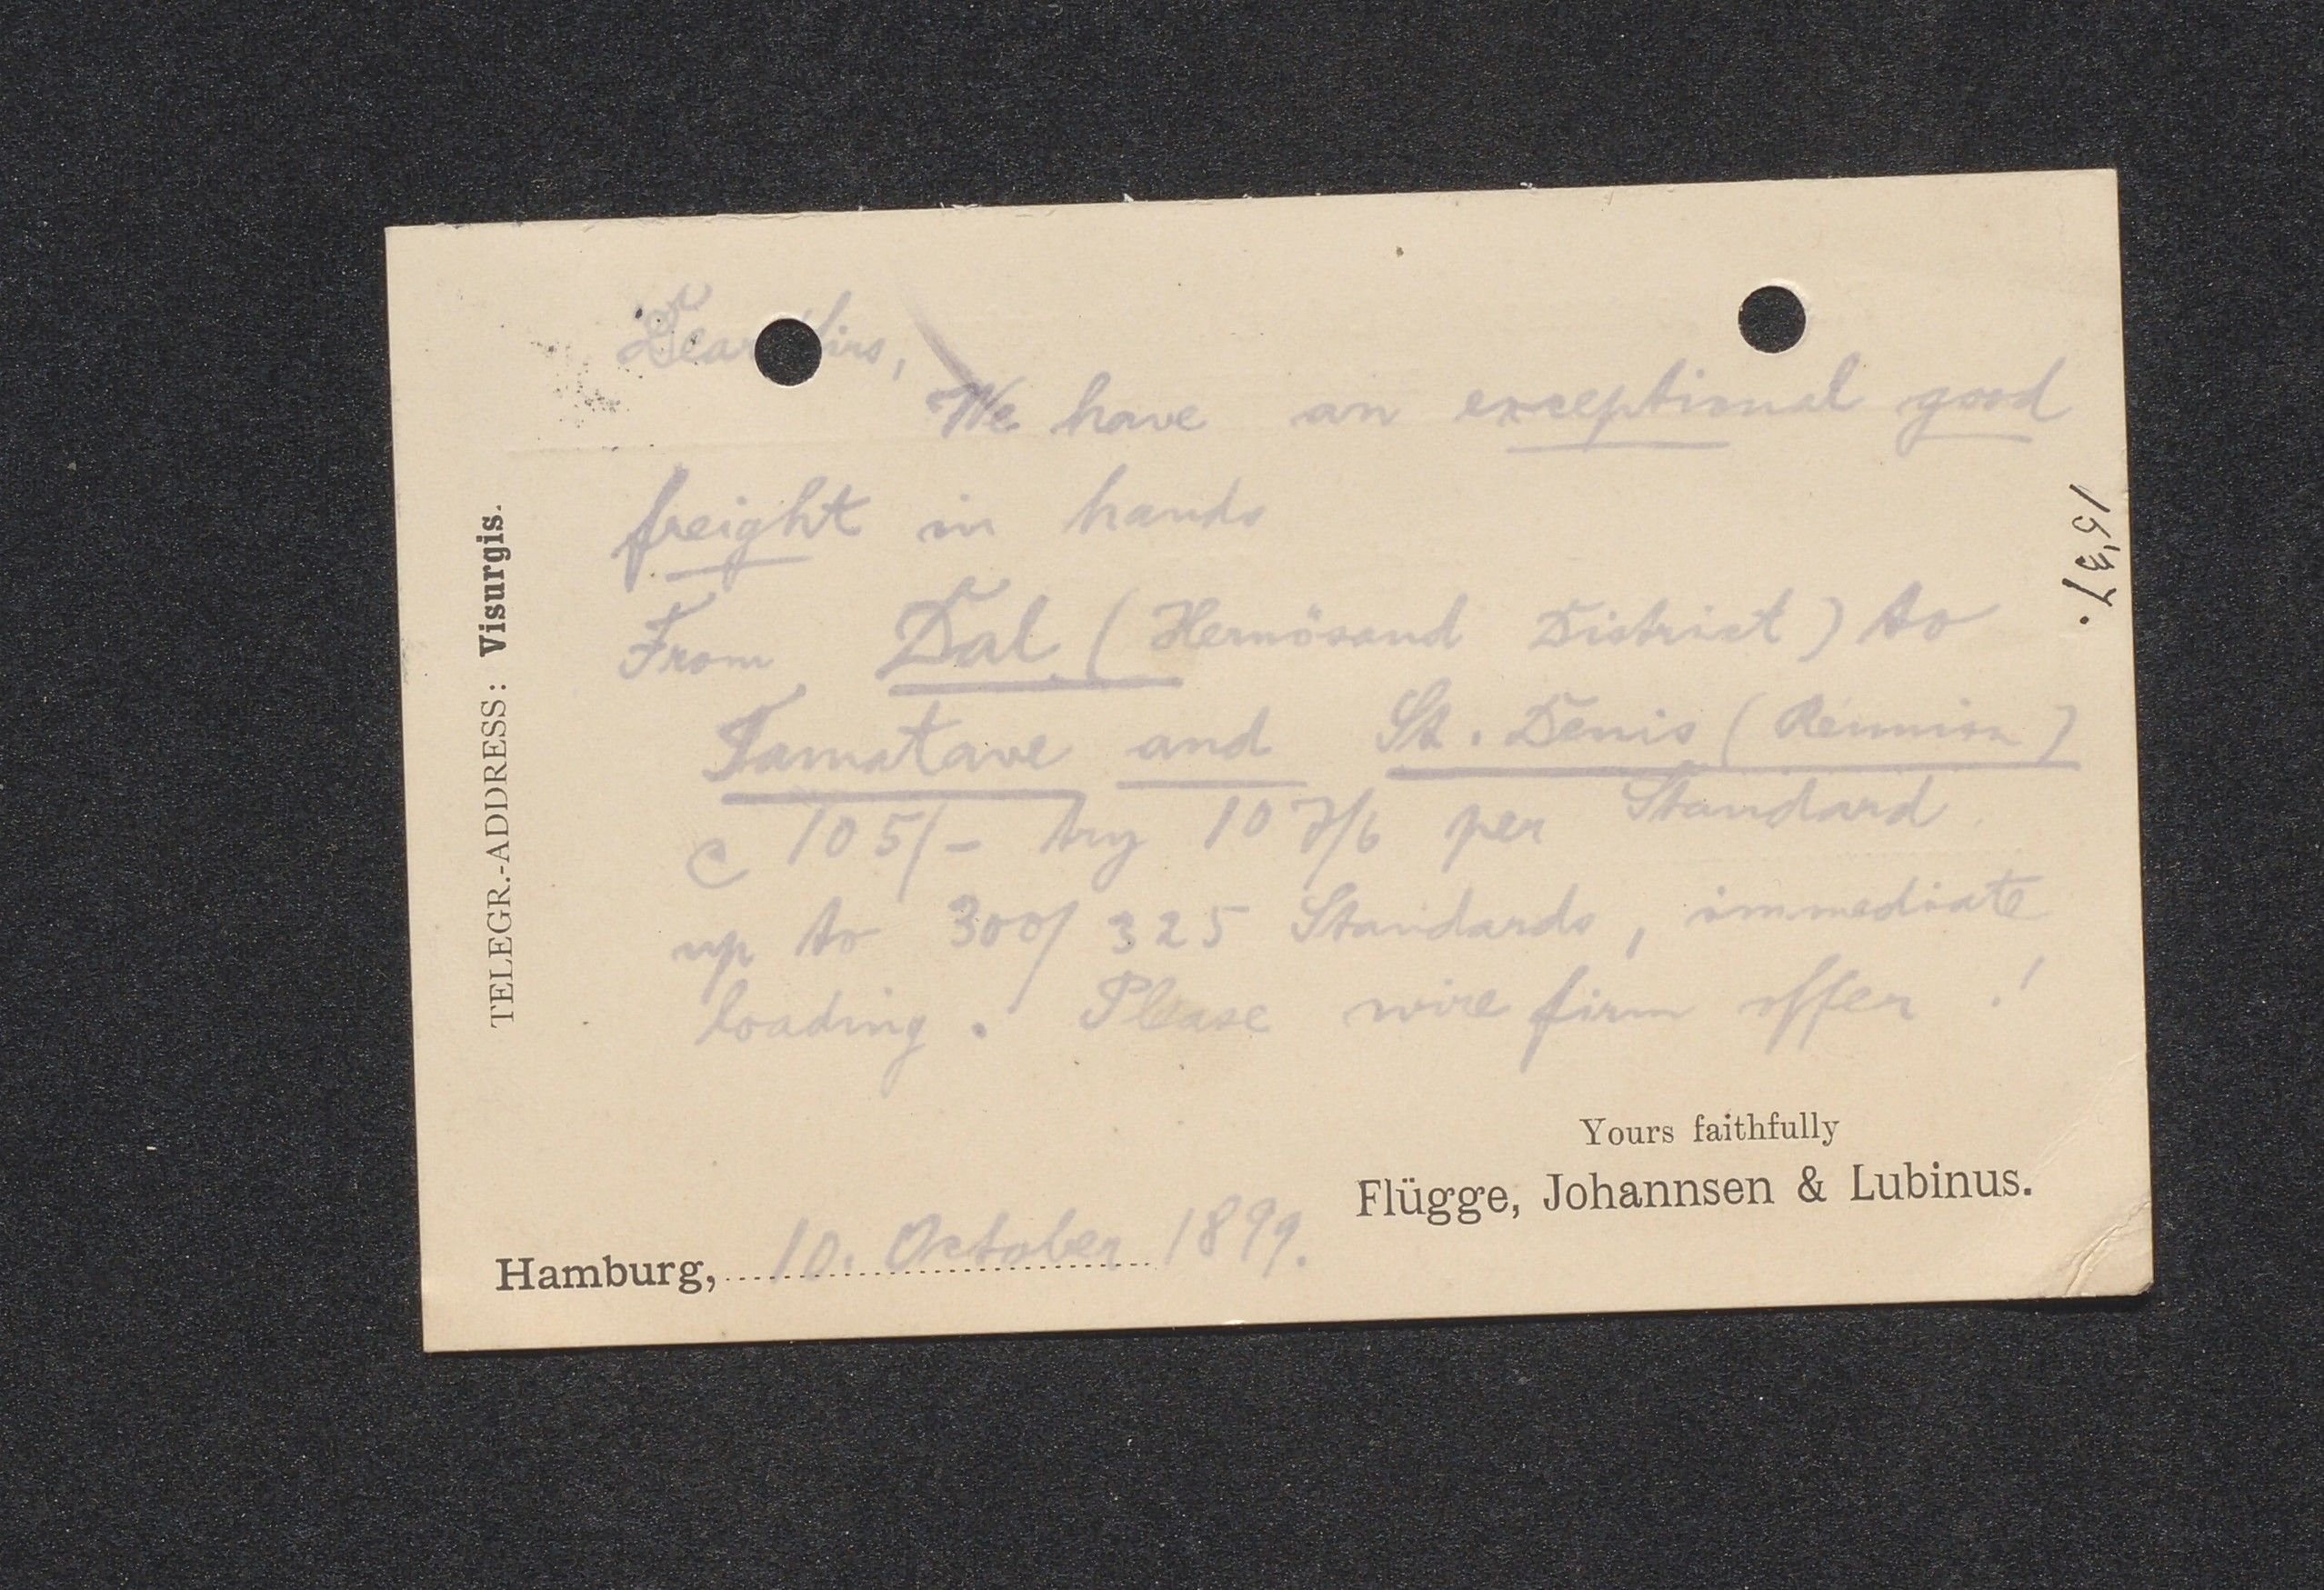 Dear Sirs,
We have an exceptional good
freight in hands
From Dal (Hernösand District) to
Tamatave and St. Denis (Réunion)
c 105/- try 107/6 per Standard
up to 300/325 Standards, immediate
loading. Please wire firm offer!
Yours faithfully
Flügge, Johannsen & Lubinus.
Hamburg, 10. October 1899.
TELEGR.-ADDRESS: Visurgis.